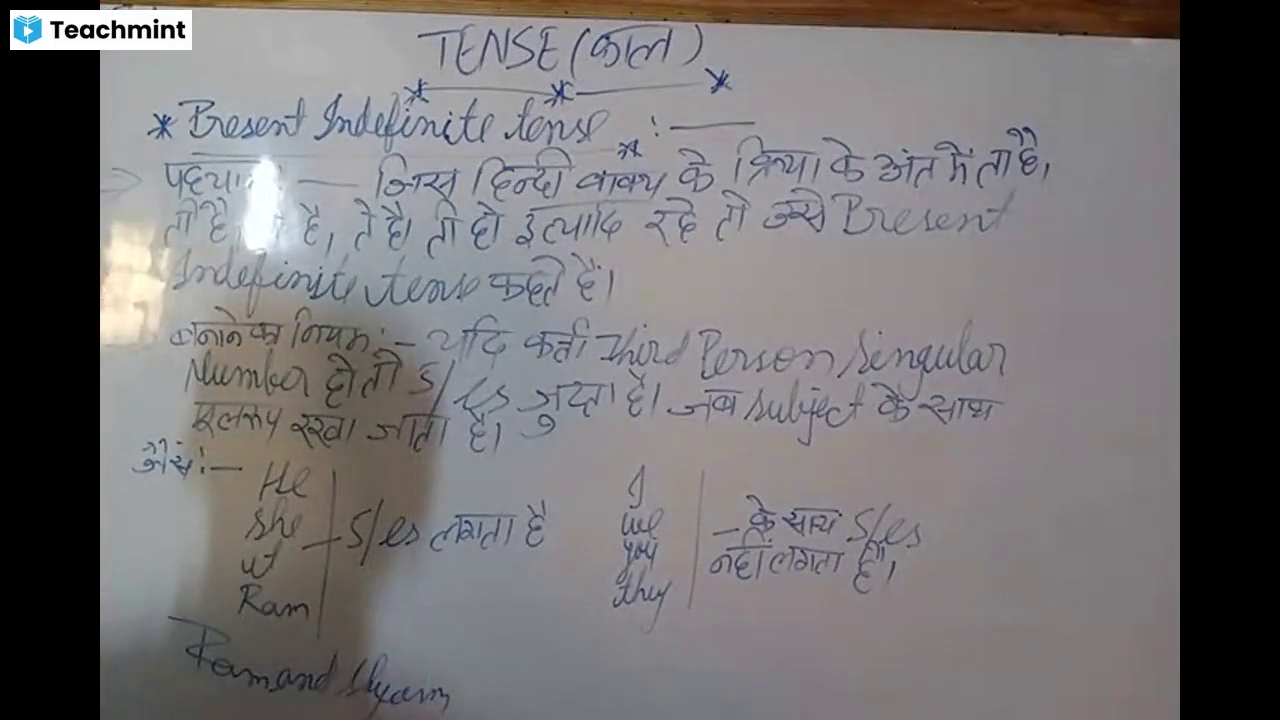 Teachmint
TENSE (काल)
* Present Indefinite tense :—
:— जिस हिन्दी वाक्य के क्रिया के अंत में ता है,
ती है, है, ते है। ती हो इत्यादि रहे तो उसे Present
Indefinite tense कहते हैं।
बनाने का नियम :- यदि कर्ता Third Person Singular
Number हो तो S/es जुटता है। जब subject के साथ
मूलरूप रखा जाता है।
जैसे :—
He
she
it
Ram
- S/es लगता है
I
we
you
they
- के साथ S/es
नहीं लगता है।
Ram and Shyam